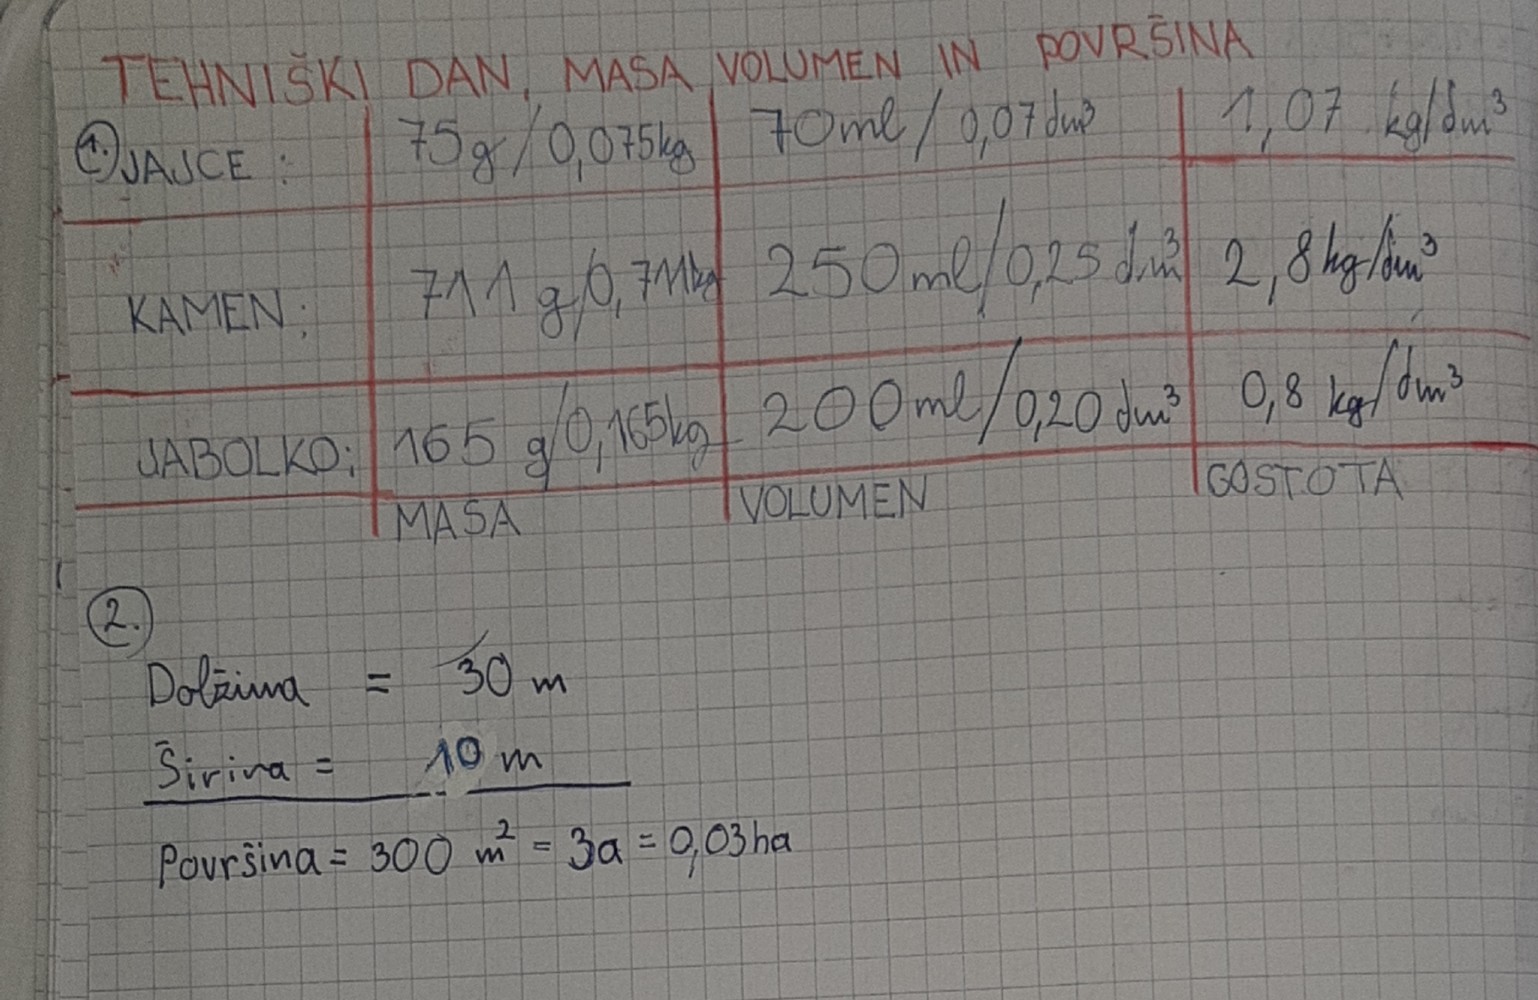 TEHNIŠKI DAN, MASA VOLUMEN IN POVRŠINA
1. JAJCE : 75g/0,075kg 70ml/0,07dm³ 1,07 kg/dm³
KAMEN: 711 g/0,711kg 250ml/0,25 dm³ 2,8kg/dm³
JABOLKO: 165 g/0,165kg 200ml/0,20 dm³ 0,8 kg/dm³
MASA VOLUMEN GOSTOTA
2.
Dolžina = 30 m
Širina = 10 m
Površina = 300 m² = 3a = 0,03ha